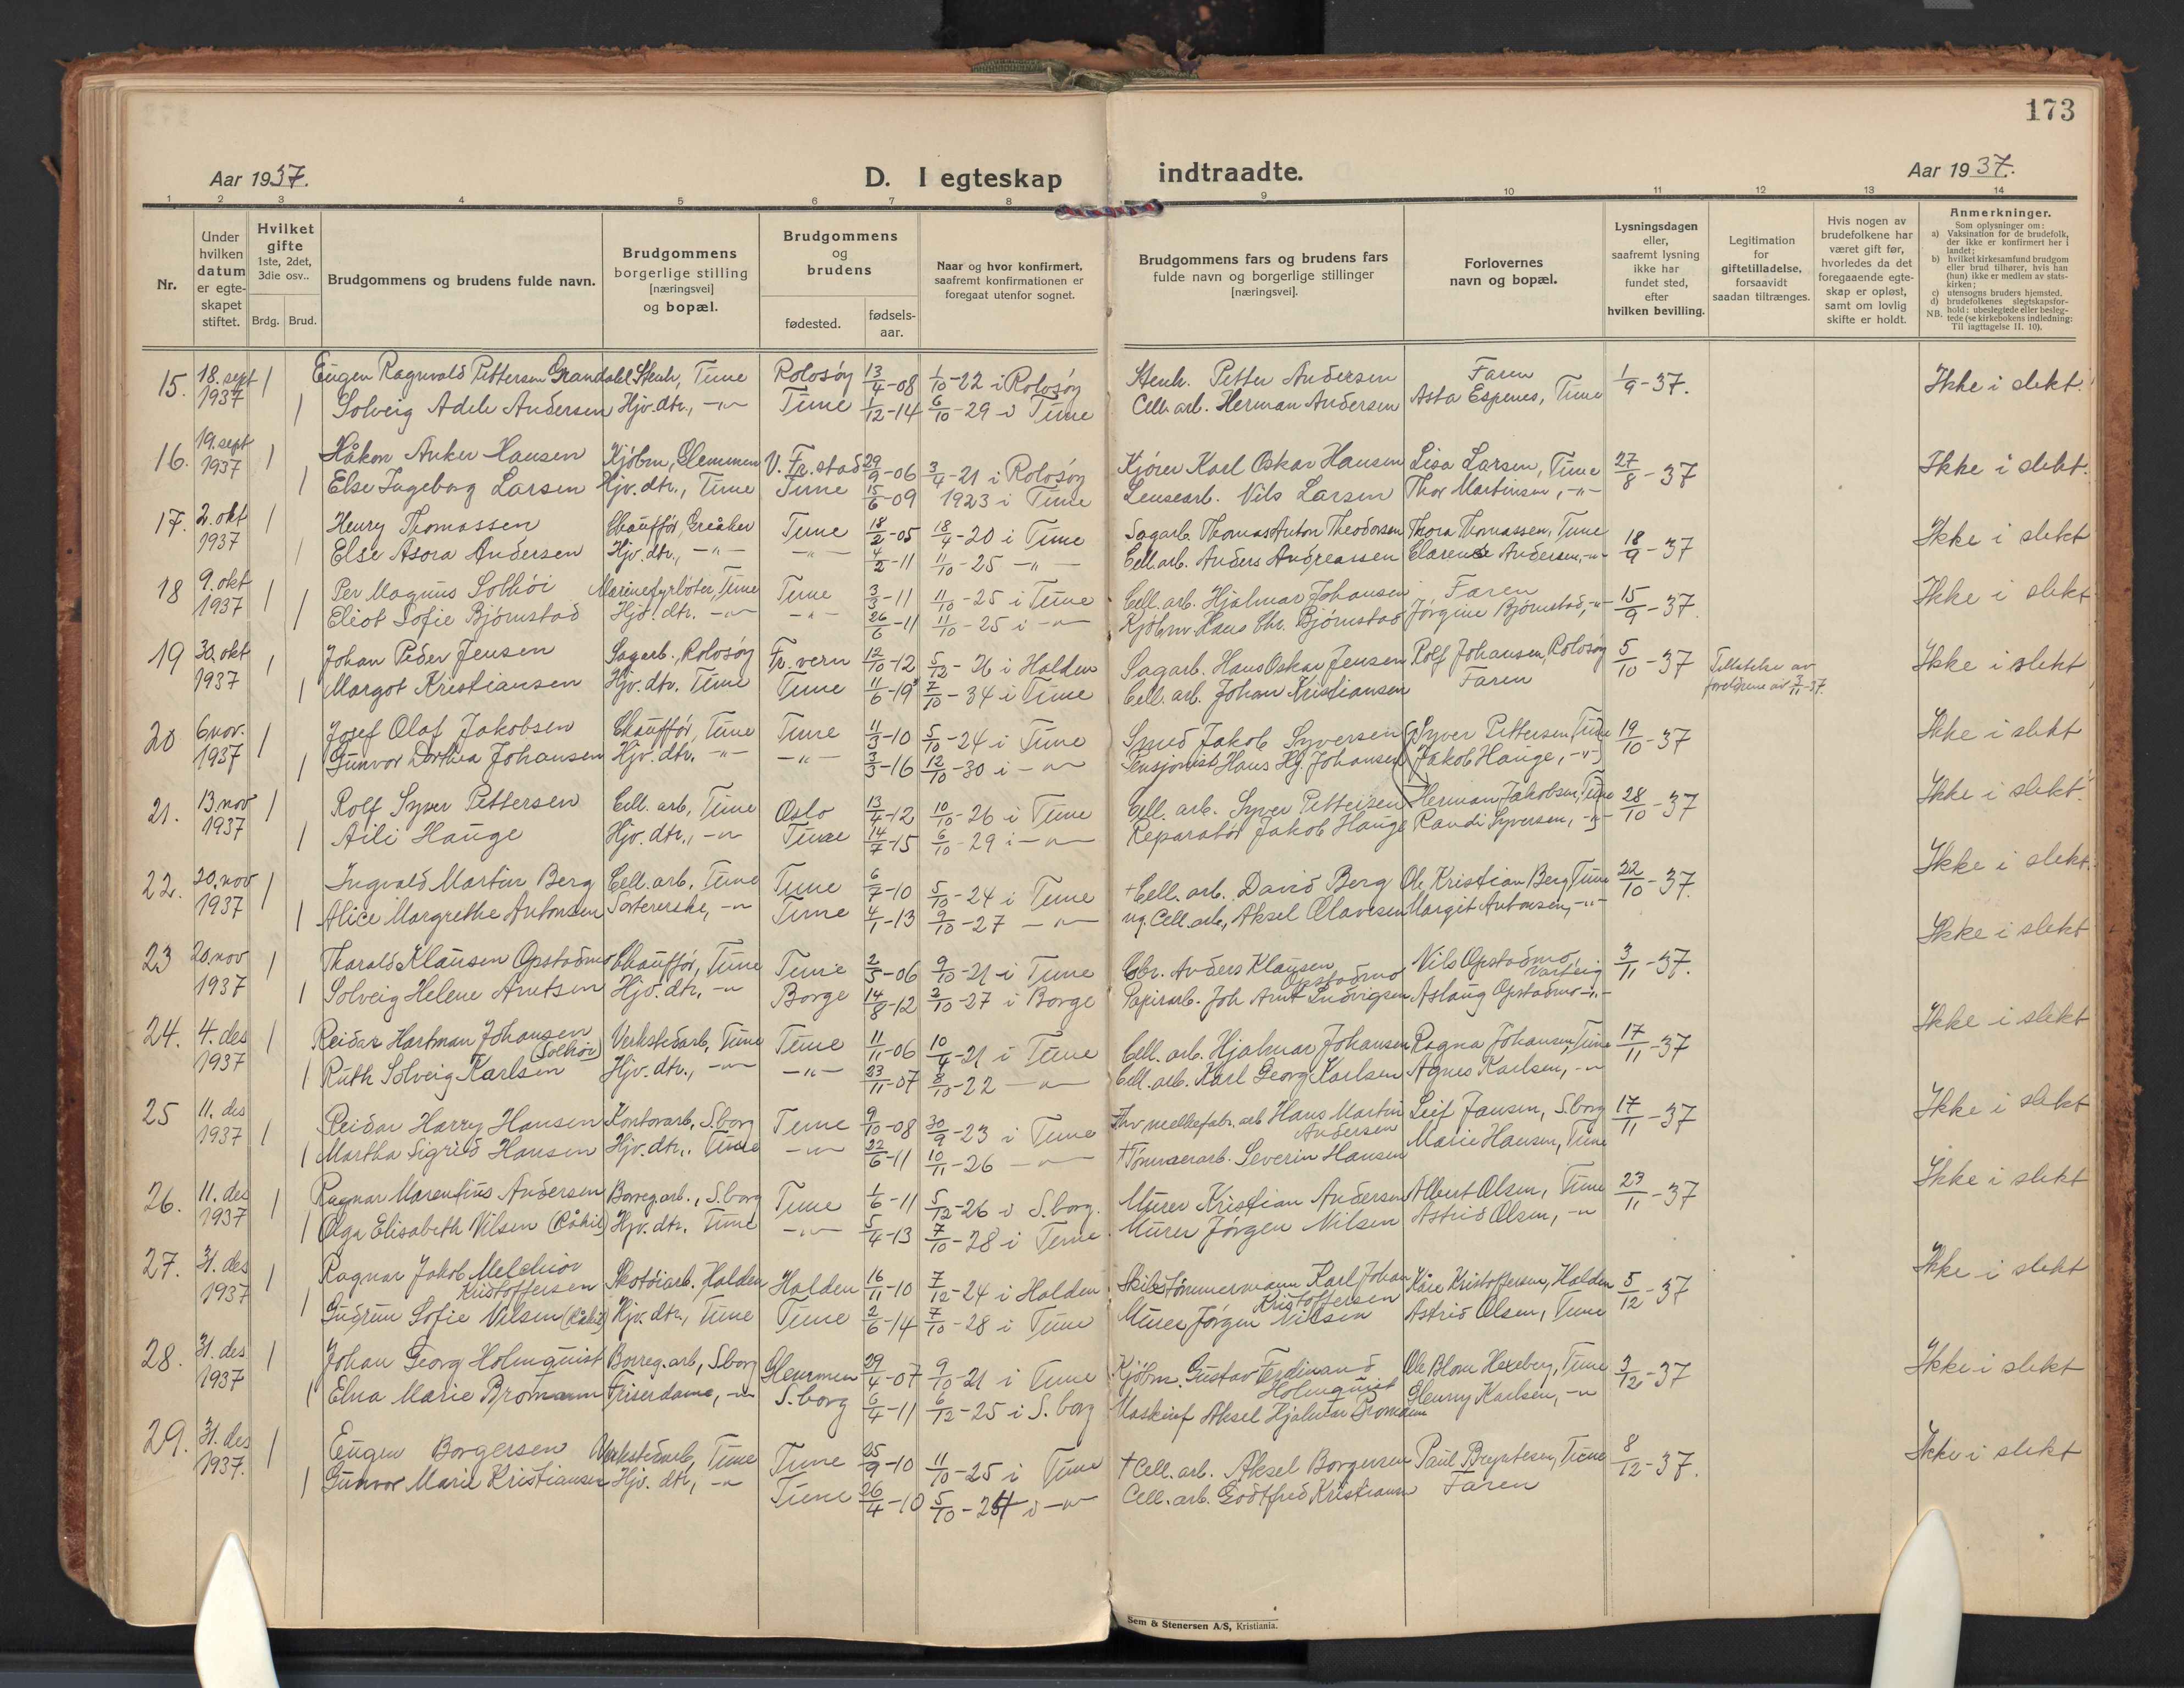 173
Aar 1937.
D. I egteskap indtraadte.
Aar 1937.
1 2 3 4 5 6 7 8 9 10 11 12 13 14
Nr.
Under hvilken datum er egte-skapet stiftet.
Hvilket gifte 1ste, 2det, 3die osv..
Brdg. Brud.
Brudgommens og brudens fulde navn.
Brudgommens borgerlige stilling [næringsvei] og bopæl.
Brudgommens og brudens
fødested.
fødsels-aar.
Naar og hvor konfirmert, saafremt konfirmationen er foregaat utenfor sognet.
Brudgommens fars og brudens fars fulde navn og borgerlige stillinger [næringsvei].
Forlovernes navn og bopæl.
Lysningsdagen eller, saafremt lysning ikke har fundet sted, efter hvilken bevilling.
Legitimation for giftetilladelse, forsaavidt saadan tiltrænges.
Hvis nogen av brudefolkene har været gift før, hvorledes da det foregaaende egte-skap er opløst, samt om lovlig skifte er holdt.
Anmerkninger.
Som oplysninger om:
a) Vaksination for de brudefolk, der ikke er konfirmert her i landet;
b) hvilket kirkesamfund brudgom eller brud tilhører, hvis han (hun) ikke er medlem av stats-kirken;
c) utensogns bruders hjemsted.
d) brudefolkenes slegtskapsfor-hold: ubeslegtede eller besleg-tede (se kirkebokens indledning: Til iagttagelse II. 10).
NB.
15. 18. sept 1937 1 Eugen Ragnvald Pettersen Grandahl Stenh, Tune Rolvsøy 13/4-08 1/10-22 i Rolvsøy Stenh. Petter Andersen Faren 1/9-37. Ikke i slekt.
1 Solveig Adele Andersen Hjv. dtr., -"- Tune 1/12-14 6/10-29 i Tune Cell. arb. Herman Andersen Asta Espenes, Tune
16. 19. sept 1937 1 Håkon Anker Hansen Kjøbm, Glemmen V. Fr.stad 29/9-06 3/4-21 i Rolvsøy Kjører Karl Oskar Hansen Lisa Larsen, Tune 27/8-37 Ikke i slekt.
1 Else Ingeborg Larsen Hjv. dtr., Tune Tune 15/6-09 1923 i Tune Lensearb. Nils Larsen Thor Martinsen, -"-
17. 2. okt 1937 1 Henry Thomassen Chauffør, Greåker Tune 18/2-05 18/4-20 i Tune Sagarb. Thomas Anton Theodorsen Thora Thomassen, Tune 18/9-37 Ikke i slekt
1 Else Asora Andersen Hjv. dtr., -"- -"- 4/2-11 11/10-25 -"- Cell. arb. Anders Andreassen Clarence Andersen, -"-
18 9. okt 1937 1 Per Magnus Solhøi Marinefyrbøter, Tune Tune 3/3-11 11/10-25 i Tune Cell. arb. Hjalmar Johansen Faren 15/9-37. Ikke i slekt
1 Eliot Sofie Bjørnstad Hjv. dtr. -"- -"- 26/6-11 11/10-25 i -"- Kjøbm. Hans Chr. Bjørnstad Jørgine Bjørnstad, -"-
19 30. okt 1937 1 Johan Peder Jensen Sagarb., Rolvsøy Fr. vern 12/10-12 5/12-26 i Halden Sagarb. Hans Oskar Jensen Rolf Johansen, Rolvsøy 5/10-37 Tillatelse av Ikke i slekt
1 Margot Kristiansen Hjv. dtr. Tune Tune 11/6-19 7/10-34 i Tune Cell. arb. Johan Kristiansen Faren foreldrene av 3/11-37.
20 6 nov. 1937 1 Josef Olaf Jakobsen Chauffør, Tune Tune 11/3-10 5/10-24 i Tune Smed Jakob Syversen (Syver Pettersen, Tune 19/10-37 Ikke i slekt
1 Gunvor Dorthea Johansen Hjv. dtr. -"- -"- 3/3-16 12/10-30 i -"- Pensjonist Hans Hj. Johansen (Jakob Hauge, -"-)
21. 13. nov 1937 1 Rolf Syver Pettersen Cell. arb, Tune Oslo 13/4-12 10/10-26 i Tune Cell. arb. Syver Pettersen Herman Jakobsen, Tune 28/10-37 Ikke i slekt.
1 Aili Hauge Hjv. dtr., -"- Tune 14/7-15 6/10-29 i -"- Reparatør Jakob Hauge Randi Syversen, -"-
22. 20. nov 1937 1 Ingvald Martin Berg Cell. arb. Tune Tune 6/7-10 5/10-24 i Tune +Cell. arb. David Berg Ole Kristian Berg Tune 22/10-37. Ikke i slekt.
1 Alice Margrethe Antonsen Sortererske, -"- Tune 4/1-13 9/10-27 -"- ug. Cell. arb., Aksel Olavesen Margit Antonsen, -"-
Ikke i slekt
23 20. nov 1937 1 Tharald Klausen Opstadmo Chauffør, Tune Tune 2/5-06 9/10-21 i Tune Gbr. Anders Klausen Opstadmo Nils Opstadmo, Varteig 3/11-37.
1 Solveig Helene Arntsen Hjv. dtr. -"- Borge 14/8-12 2/10-27 i Borge Papirarb. Joh Arnt Ludvigsen Aslaug Opstadmo -"-
24. 4. des 1937 1 Reidar Hartman Johansen (Solhøi) Verkstedarb, Tune Tune 11/11-06 10/4-21 i Tune Cell. arb. Hjalmar Johansen Ragna Johansen, Tune 17/11-37 Ikke i slekt
1 Ruth Solveig Karlsen Hjv. dtr., -"- -"- 23/11-07 8/10-22 -"- Cell. arb. Karl Georg Karlsen Agnes Karlsen, -"-
25 11. des 1937 1 Reidar Harry Hansen Kontorarb, S.borg Tune 9/10-08 30/9-23 i Tune Hans Martin Andersen Leif Jansen, S.borg 17/11-37 Ikke i slekt
1 Martha Sigrid Hansen Hjv. dtr., Tune -"- 22/6-11 10/11-26 -"- +Tømmerarb. Severin Hansen Marie Hansen, Tune
26. 11. des 1937 1 Ragnar Marentius Andersen Borreg.arb., S.borg Tune 1/6-11 5/12-26 i S.borg. Murer Kristian Andersen Albert Olsen, Tune 23/11-37 Ikke i slekt
1 Olga Elisabeth Nilsen (Råkil) Hjv. dtr. Tune -"- 5/4-13 7/10-28 i Tune Murer Jørgen Nilsen Astrid Olsen, -"-
27. 31. des 1937 1 Ragnar Jakob Melchior Kristoffersen Skotøiarb. Halden Halden 16/11-10 7/12-24 i Halden Skibstømmermann Karl Johan Kristoffersen Kåre Kristoffersen, Halden 5/12-37 Ikke i slekt
1 Gudrun Sofie Nilsen (Råkil) Hjv. dtr., Tune Tune 2/6-14 7/10-28 i Tune Murer Jørgen Nilsen Astrid Olsen, Tune
28. 31. des 1937 1 Johan Georg Holmquist Borreg.arb, S.borg Glemmen 29/4-07 9/10-21 i Tune Kjøbm. Gustav Ferdinand Holmquist Ole Blom Hexeberg, Tune 3/12-37 Ikke i slekt
1 Elna Marie Bromann Friserdame, -"- S.borg 6/4-11 6/12-25 i S.borg Maskinf Aksel Hjalmar Bromann Glenny Karlsen, -"-
29. 31. des 1937. 1 Eugen Borgersen Verkstedarb, Tune Tune 25/9-10 11/10-25 i Tune +Cell. arb. Aksel Borgersen Paul Tune 8/12-37. Ikke i slekt
1 Gunvor Marie Kristiansen Hjv. dtr, -"- Tune 26/4-10 5/10-24 i -"- Cell. arb. Godtfred Kristiansen Faren
Sem & Stenersen A/S, Kristiania.